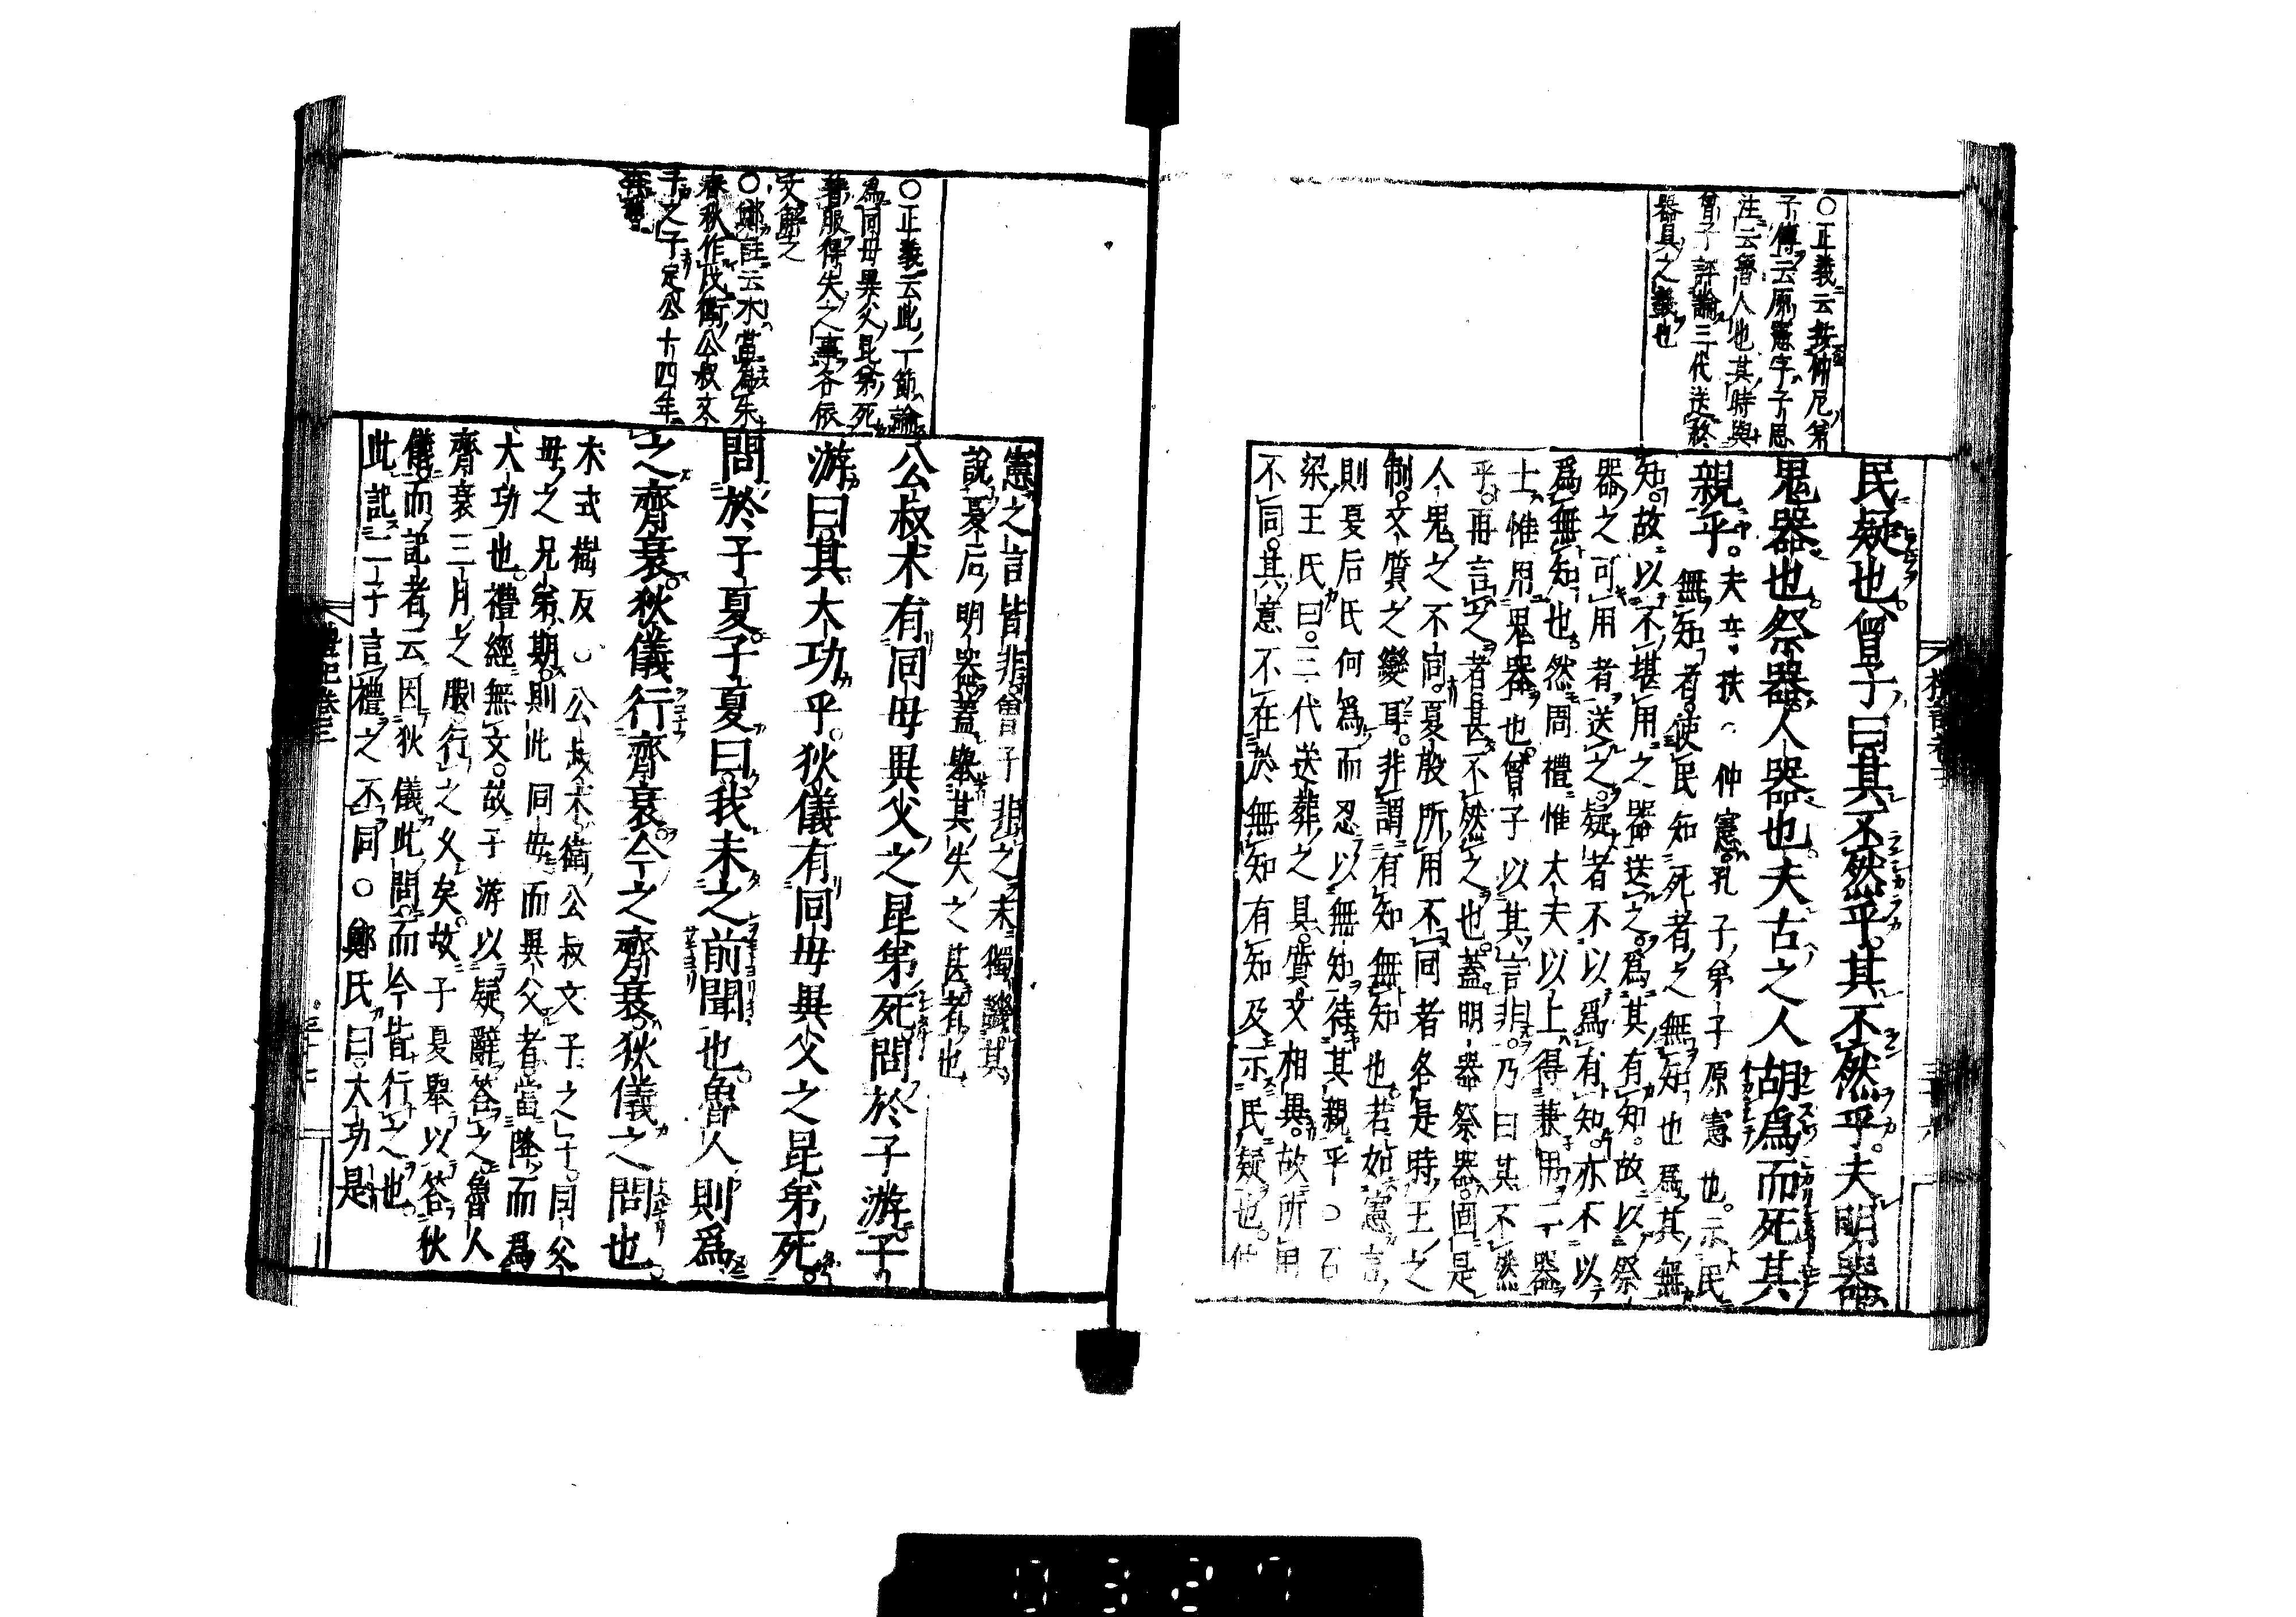 〇正義云按仲尼弟
子傳云原憲字子思
注云魯人也其時與
曾子評論三代送終
器具之義也
民疑也曾子曰其不然乎其不然乎夫明器
鬼器也祭器人器也夫古之人胡爲而死其
親乎夫音扶〇仲憲孔子弟子原憲也示民
無知者使民知死者之無知也爲其無
知故以不堪用之器送之爲其有知故以祭
器之可用者送之疑者不以爲有知亦不以
爲無知也然周禮惟大夫以上得兼用二器
士惟用鬼器也曾子以其言非乃曰其不然
乎再言之者甚不然之也蓋明器祭器固是
人鬼之不同夏殷所用不同者各是時王之
制文質之變耳非謂有知無知也若如憲言
則夏后氏何爲而忍以無知待其親乎〇石
梁王氏曰三代送葬之具質文相異故所用
不同其意不在於無知有知及示民疑也仲
憲之言皆非曾子非之未獨譏其
說夏后明器蓋舉其失之甚者也
〇正義云此一節論
爲同母異父昆弟死
著服得失之事各依
文解之
〇鄭註云木當爲朱
春秋作戍衛公叔文
子之子定公十四年
奔魯
公叔木有同母異父之昆弟死問於子游子
游曰其大功乎狄儀有同母異父之昆弟死
問於子夏子夏曰我未之前聞也魯人則爲
之齊衰狄儀行齊衰今之齊衰狄儀之問也
木式樹反〇公叔木衛公叔文子之子同父
母之兄弟期則此同母而異父者當降而爲
大功也禮經無文故子游以疑辭答之魯人
齊衰三月之服行之久矣故子夏舉以答狄
儀而記者云因狄儀此問而今皆行之也
此記二子言禮之不同〇鄭氏曰大功是
禮記卷三
三十七